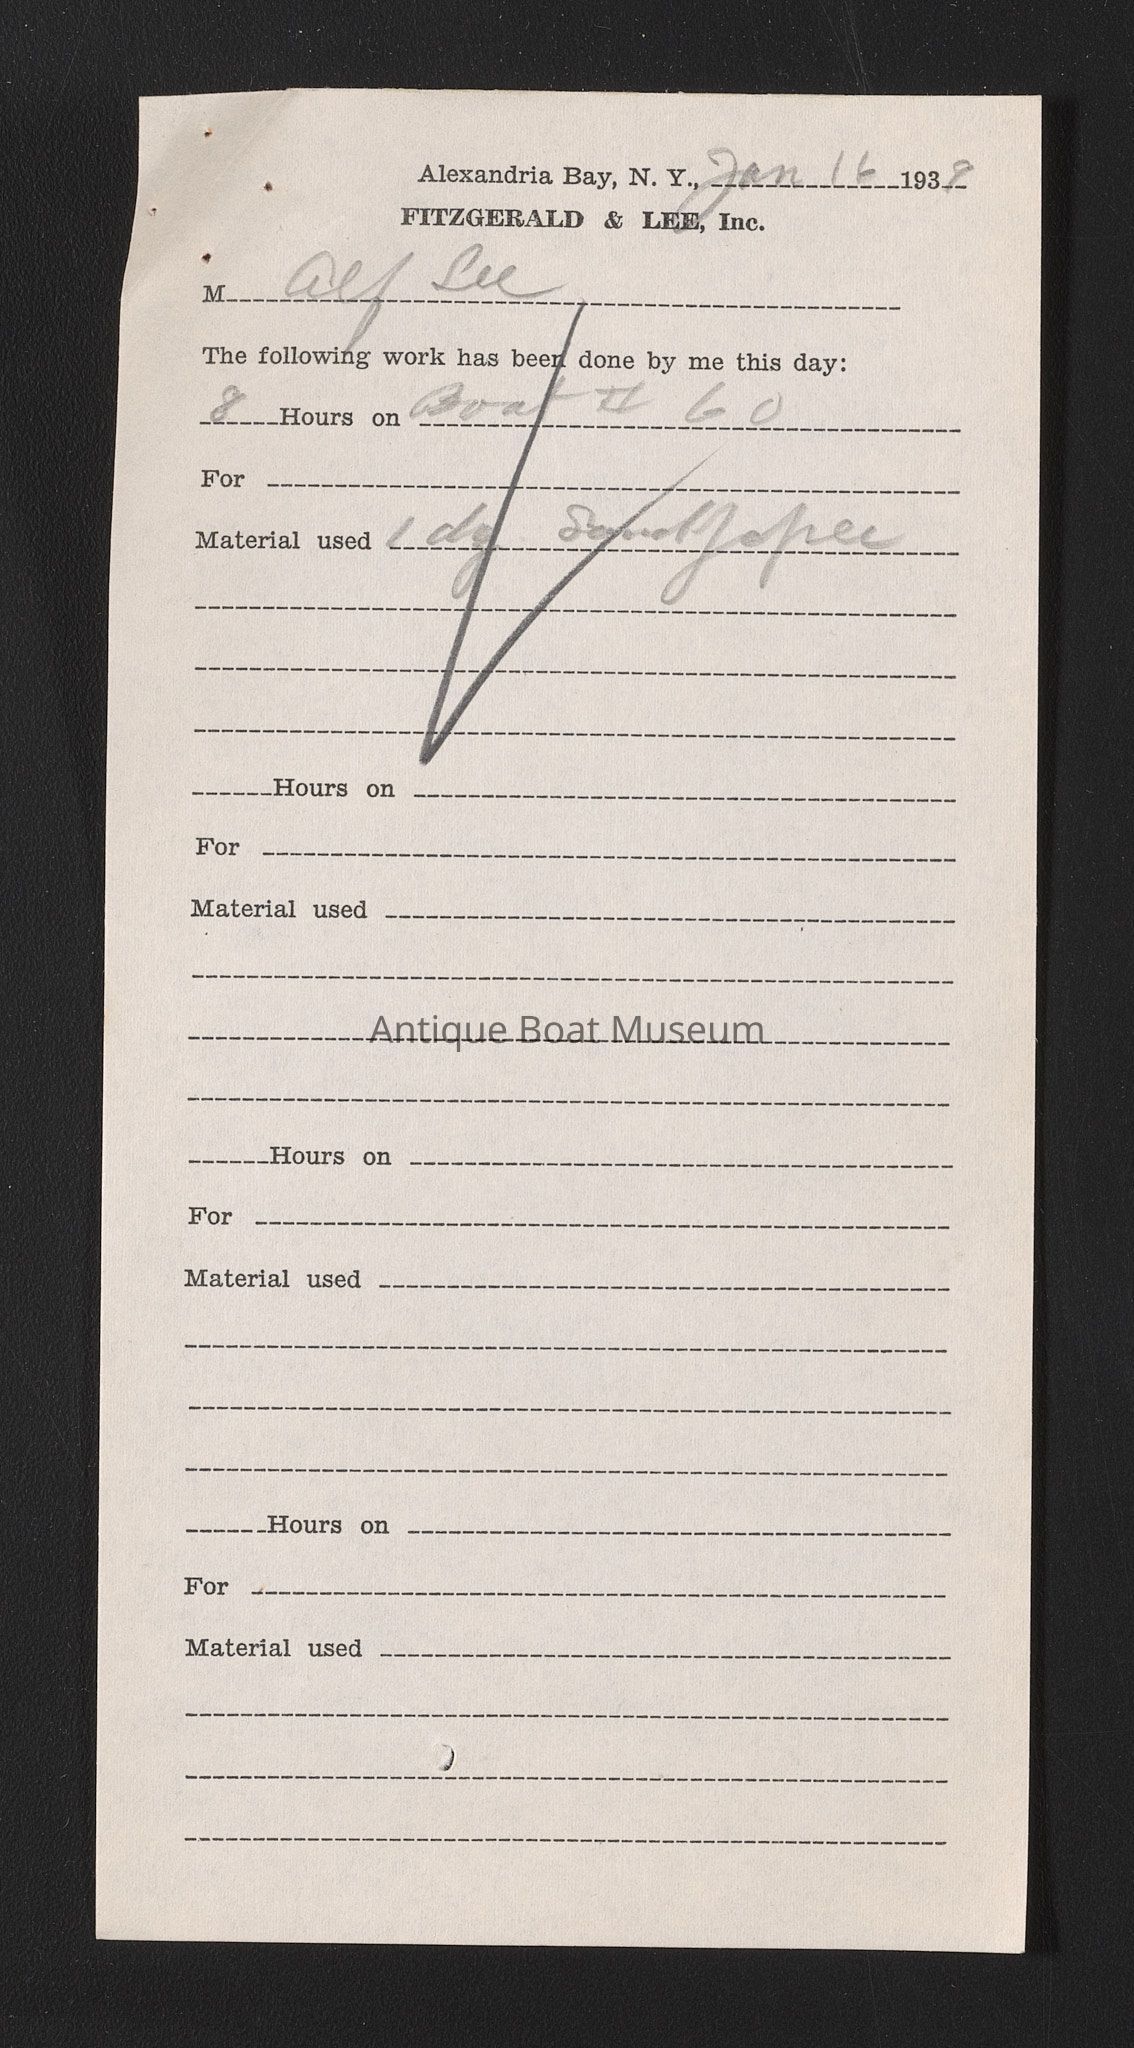 Alexandria Bay, N. Y., Jan 16 1939
FITZGERALD & LEE, Inc.
M Alf Lee
The following work has been done by me this day:
8 Hours on Boat # 60
For
Material used 1 dz Sandpaper
Hours on
For
Material used
Antique Boat Museum
Hours on
For
Material used
Hours on
For
Material used